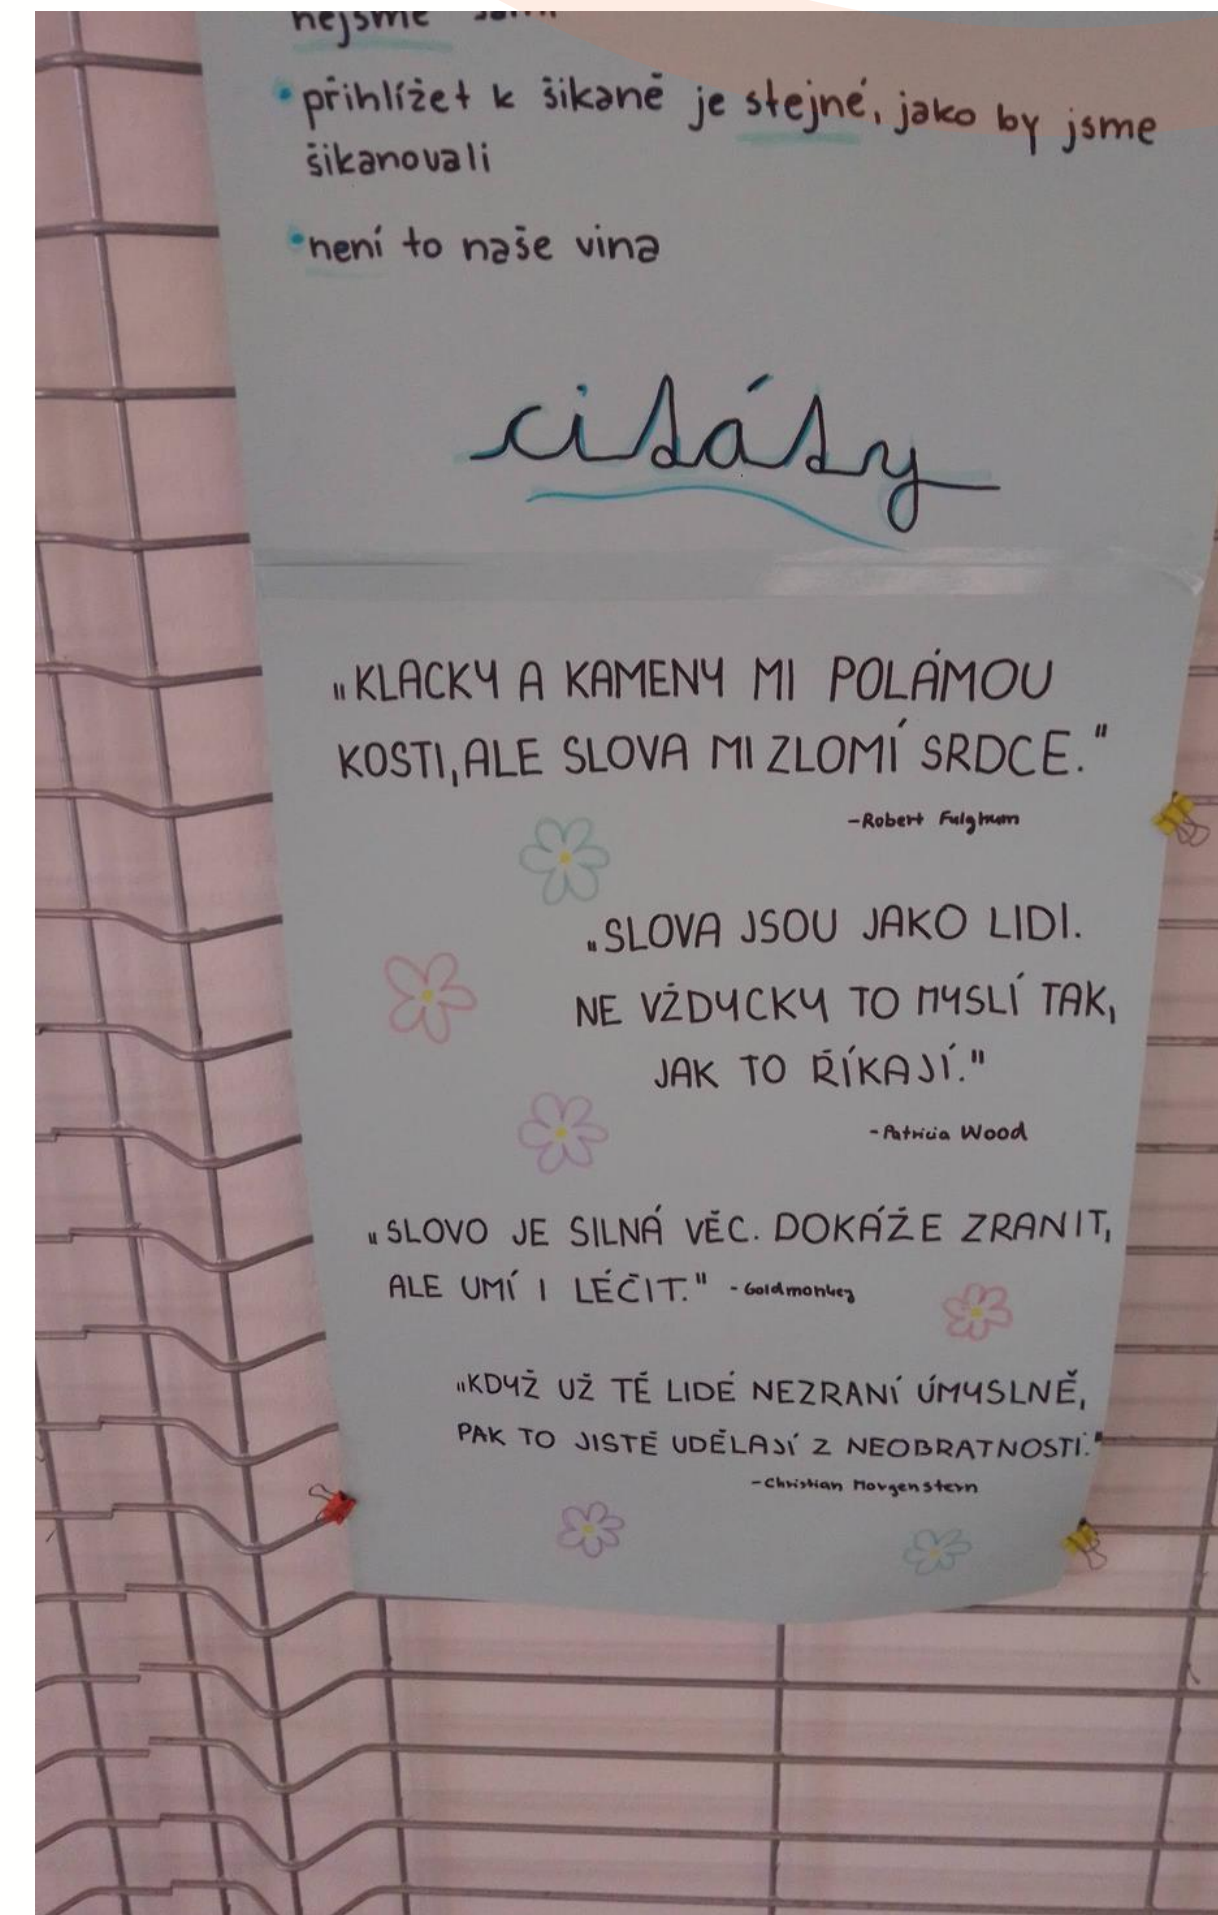 nejsme sami
• přihlížet k šikaně je stejné, jako by jsme
šikanovali
• není to naše vina
citáty
„KLACKY A KAMENY MI POLÁMOU
KOSTI, ALE SLOVA MI ZLOMÍ SRDCE."
-Robert Fulghum
„SLOVA JSOU JAKO LIDI.
NE VŽDYCKY TO MYSLÍ TAK,
JAK TO ŘÍKAJÍ."
-Patricia Wood
„SLOVO JE SILNÁ VĚC. DOKÁŽE ZRANIT,
ALE UMÍ I LÉČIT." -Goldmonkey
„KDYŽ UŽ TĚ LIDÉ NEZRANÍ ÚMYSLNĚ,
PAK TO JISTĚ UDĚLAJÍ Z NEOBRATNOSTI."
-Christian Morgenstern